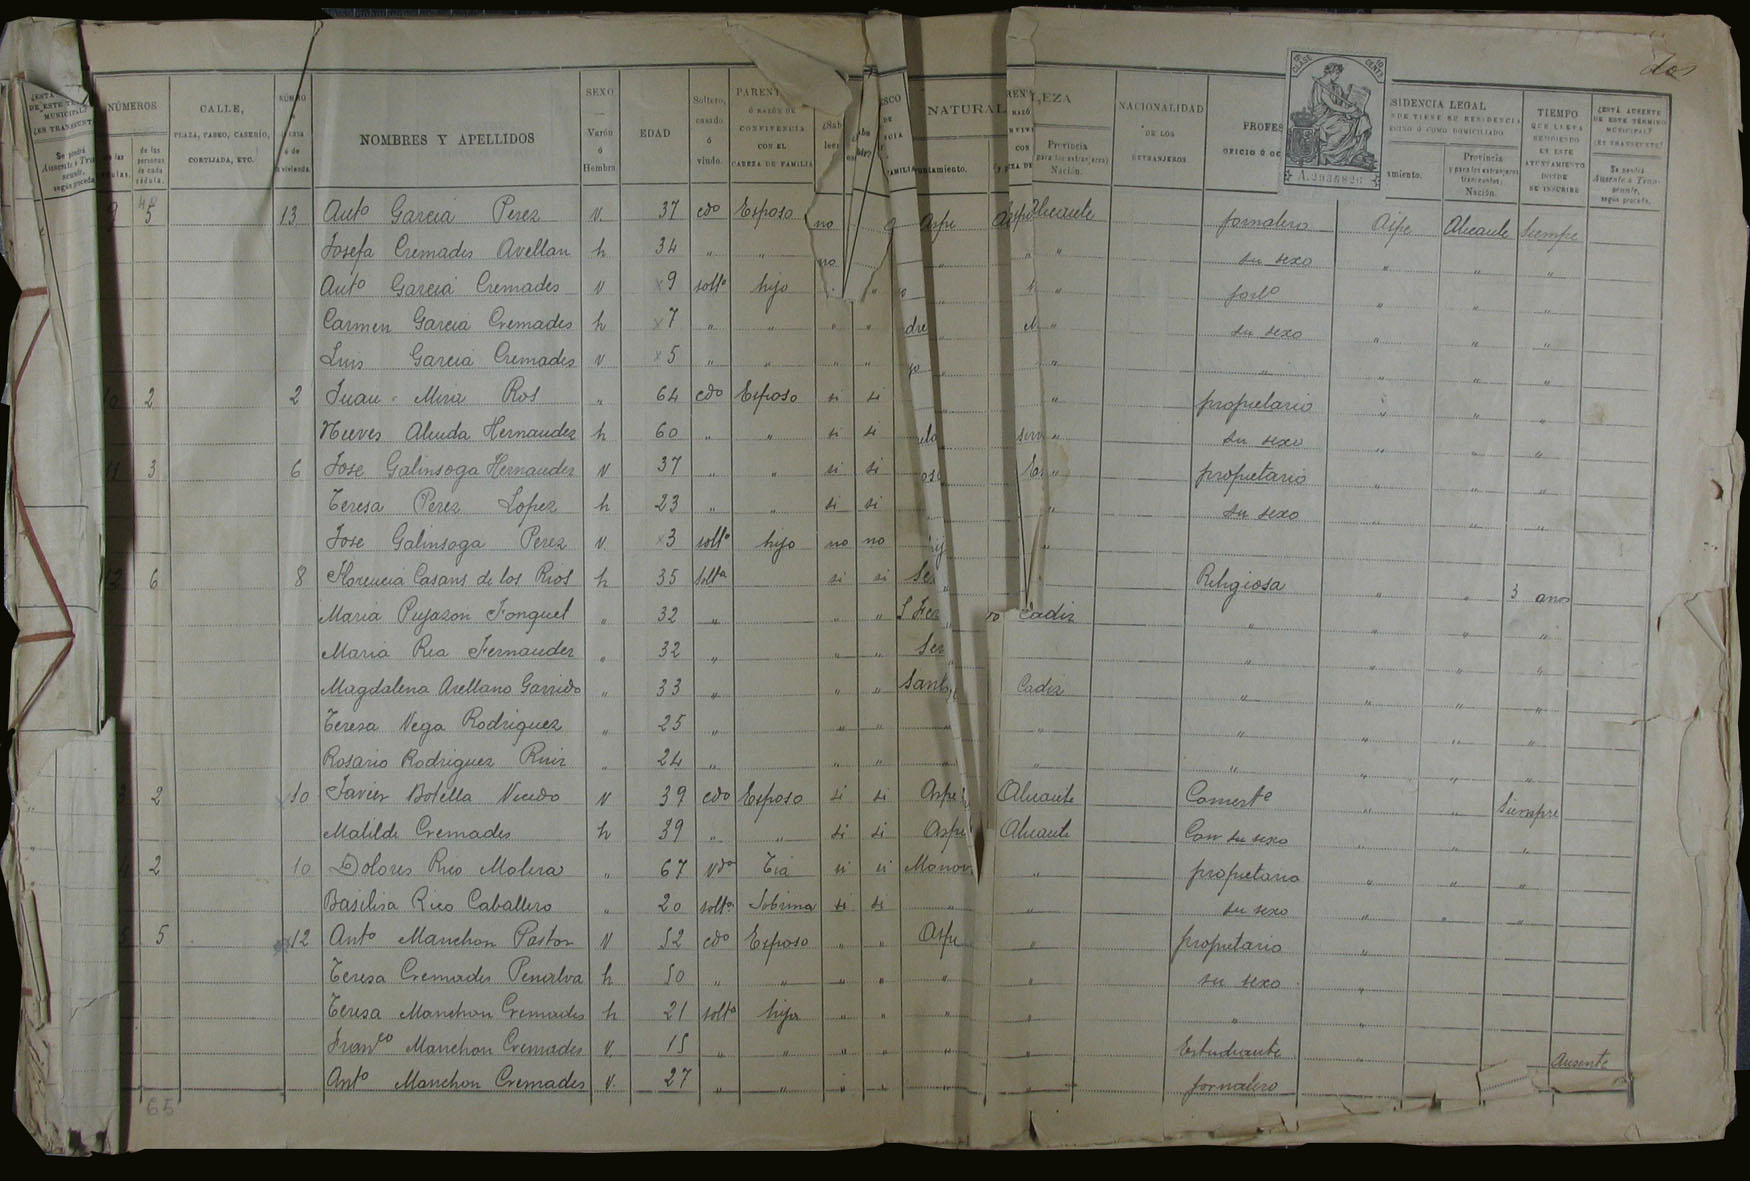 dos
¿ESTA
DE ESTE TE
MUNICIPAL?
¿ES TRANSEUNT
Se pondrá
Ausente ó Tran
seunte,
según proceda
NÚMEROS
de las
cédulas.
de las
personas
de cada
cédula.
CALLE,
PLAZA, PASEO, CASERÍO,
CORTIJADA, ETC.
NOMBRES Y APELLIDOS
SEXO
Varón
ó
Hembra
EDAD
Soltero,
casado
ó
viudo.
PARENT
Ó RAZÓN DE
CONVIVENCIA
CON EL
CABEZA DE FAMILIA
¿Sab
leer
ESCO
DE
FAMILIA
NATURAL
untamiento.
LEZA
Provincia
(para los extranjeros)
Nación.
NACIONALIDAD
DE LOS
EXTRANJEROS
PROFES
OFICIO Ó OC
10ª CLASE
10 CENTS
A.2935826
SIDENCIA LEGAL
NDE TIENE SU RESIDENCIA
ECINO Ó COMO DOMICILIADO
amiento.
Provincia
y para los extranjeros
transeuntes:
Nación.
TIEMPO
QUE LLEVA
RESIDIENDO
EN ESTE
AYUNTAMIENTO
DONDE
SE INSCRIBE
¿ESTÁ AUSENTE
DE ESTE TÉRMINO
MUNICIPAL?
¿ES TRANSEUNTE?
Se pondrá
Ausente ó Tran-
seunte,
según proceda.
9 5 13 Antº Garcia Perez v. 37 cdo Esposo no Aspe Alicante jornalero Aspe Alicante Siempre
Josefa Cremades Avellan h 34 " " no " " su sexo " " "
Antº Garcia Cremades v 9 soltº hijo " " " " "
Carmen Garcia Cremades h 7 " " " " dre " su sexo " " "
Luis Garcia Cremades v 5 " " " " jo " " " " " "
10 2 2 Juan Mira Ros " 64 cdo Esposo si si " " propietario " " "
Nieves Alenda Hernandez h 60 " " si si " su sexo " " "
11 3 6 Jose Galinsoga Hernandez v 37 " " si si " propietario " " "
Teresa Perez Lopez h 23 " " si si " su sexo " "
Jose Galinsoga Perez v. 3 soltº hijo no no "
12 6 8 Florencia Casans de los Rios h 35 solta si si Se " Religiosa " " 3 años
Maria Pujazon Fonquel " 32 " " S Fer Cadiz " " " "
Maria Rea Fernandez " 32 " " " Se " " " "
Magdalena Arellano Garrido " 33 " " " Sanl Cadiz " " " "
Teresa Vega Rodriguez " 25 " " " " " " " " "
Rosario Rodriguez Ruiz " 24 " " " " " " " " "
2 10 Javier Botella Vicedo v 39 cdo Esposo si si Aspe Alicante Comerte " " Siempre
Matilde Cremades h 39 " " si si Aspe Alicante Con su sexo " " "
2 10 Dolores Rico Molina " 67 vda Tia si si Monov " propietaria " " "
Basilisa Rico Caballero " 20 solta Sobrina si si " " su sexo " " "
5 12 Antº Manchon Pastor v 52 cdo Esposo " " Aspe " propietario "
Teresa Cremades Penalva h 50 " " " " " " su sexo "
Teresa Manchon Cremades h 21 solta hija " " " " " "
Franco Manchon Cremades v. 15 " " " " " " Estudiante " Ausente
Antº Manchon Cremades v. 27 " " " " " " jornalero
65